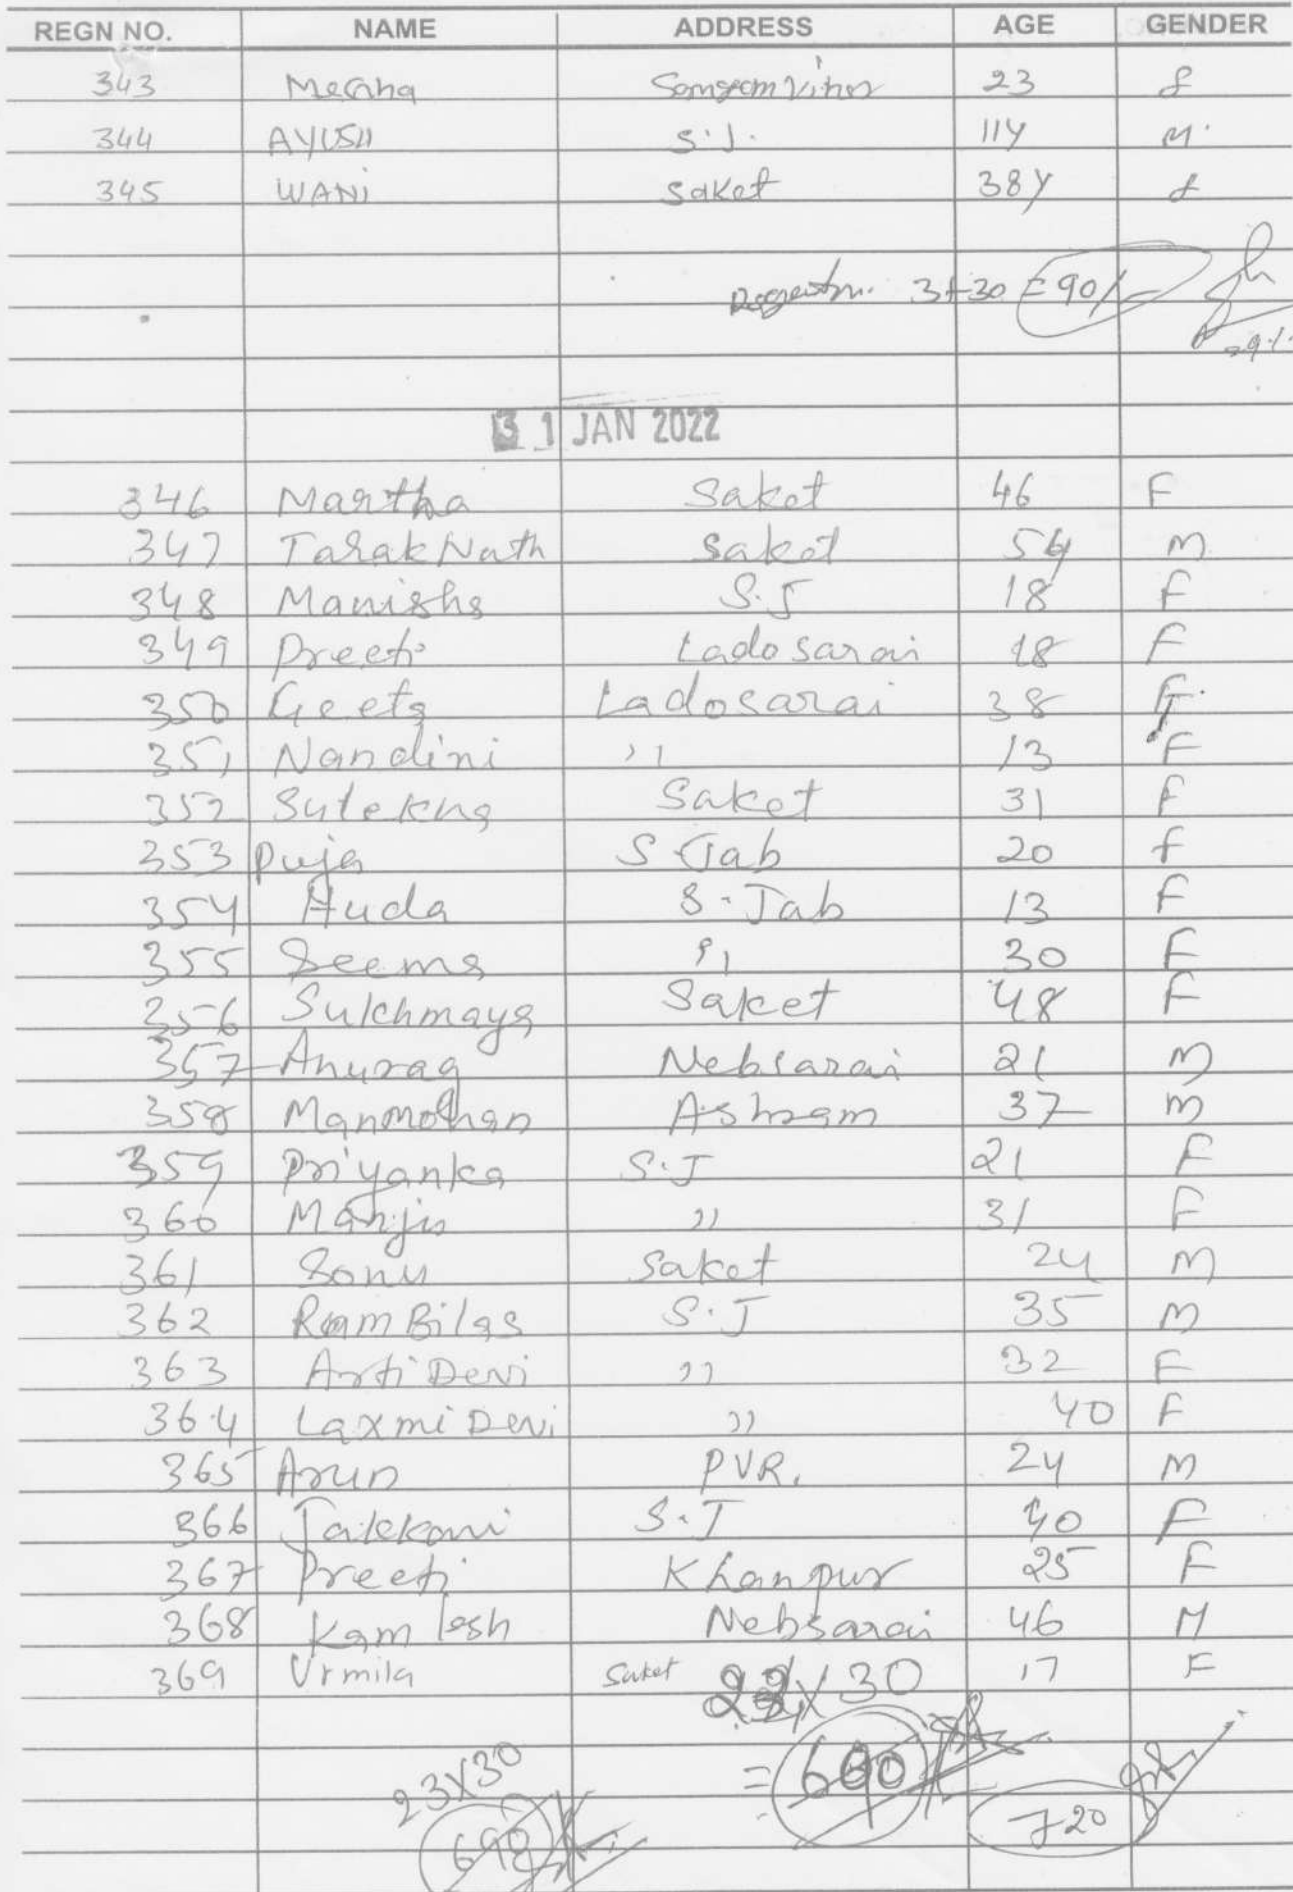 REGN NO. NAME ADDRESS AGE GENDER
343 Megha Sangam Vihar 23 f
344 AYUSH S.J. 11Y M.
345 WANI Saket 38Y f
3+30 = 90/-
31 JAN 2022
346 Martha Saket 46 F
347 Tarak Nath Saket 54 M
348 Manisha S.J 18 F
349 Preeti Lado Sarai 18 F
350 Geeta Ladosarai 38 F.
351 Nandini ,, 13 F
352 Sulekha Saket 31 F
353 Puja S Jab 20 f
354 Huda S-Jab 13 F
355 Seema ,, 30 F
356 Sukhmaya Saket 48 F
357 Anurag Nebsarai 21 M
358 Manmohan Ashram 37 M
359 Priyanka S.J 21 F
360 Manju ,, 31 F
361 Sonu Saket 24 M
362 Ram Bilas S.J 35 M
363 Arti Devi ,, 32 F
364 Laxmi Devi ,, 40 F
365 Arun PVR. 24 M
366 S.J 40 F
367 Preeti Khanpur 25 F
368 Kamlesh Nebsarai 46 M
369 Urmila Saket 17 F
X 30
23X30 = 690
690 720